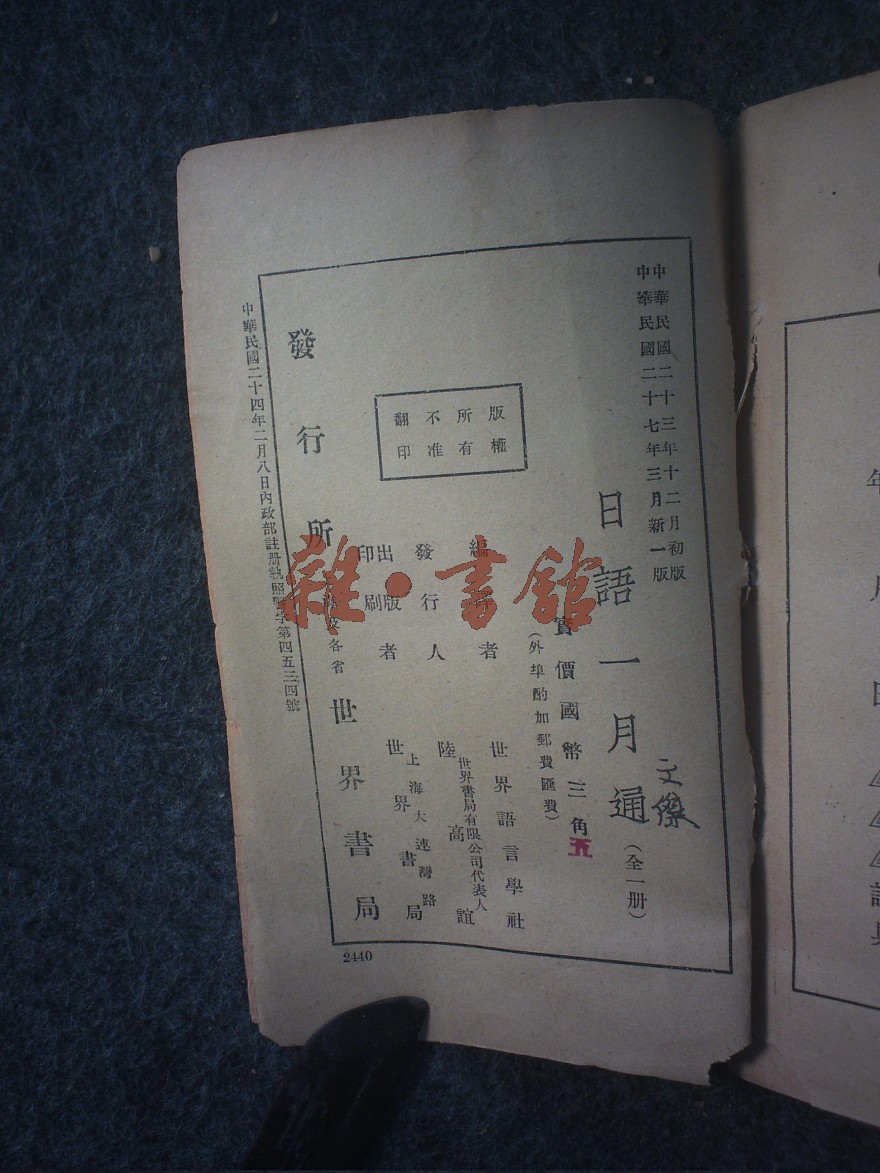 中華民國二十三年十二月初版
中華民國二十七年三月新一版
日語一月通（全一册）
文傑
實價國幣三角五
（外埠酌加郵費匯費）
版權所有不准翻印
編 者 世界語言學社
發行人 陸高誼
世界書局有限公司代表人
出版印刷者 世界書局
上海大連灣路
發行所 各省 世界書局
中華民國二十四年二月八日內政部註册執照警字第四五三四號
2440
雜·書館